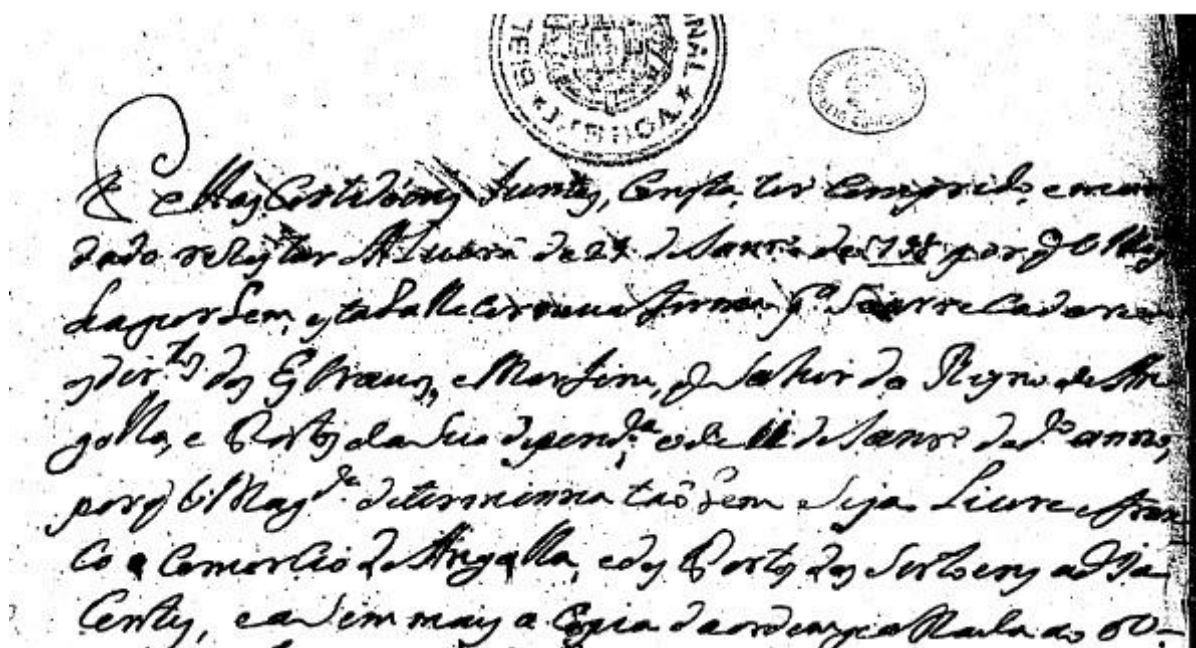 LISBOA
Pellas Certidoens Juntas, Consta, ter Comprido, e man
dado reRegistar ALvara de 25 de Janrº de 1758 por q̃ V Mag
da por bem, estaballecer noua forma pª Searrecadarem
os dirtos dos Escrauos, e Marfim, q̃ Sahir do Reyno de An
golla, e Portos da Sua dependª, e o de 11 de Janrº do dº anno,
porq̃ V Magde determinna taõbem Seja Liure e fran
Co o Comercio de Angolla, e dos Portos dos Sertoens adja
Centes, e a Sem mais a Copia da ordem